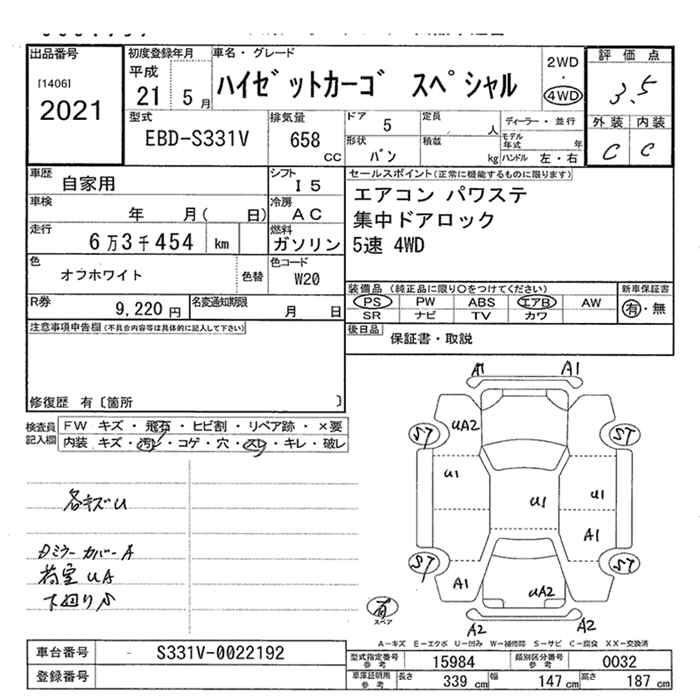 出品番号 初度登録年月 車名・グレード 評価点
[1406] 平成 2WD
2021 21 5月 ハイゼットカーゴ スペシャル ・ 3.5
4WD
型式 排気量 ドア 5 定員 人 ディーラー・並行 外装 内装
EBD-S331V 658 CC 形状 バン 積載 kg モデル年式 年 C C
ハンドル 左・右
車歴 自家用 シフト I5 セールスポイント(正常に機能するものに限ります)
車検 年 月( 日) 冷房 AC エアコン パワステ
走行 6万3千454 km 燃料 ガソリン 集中ドアロック
色 オフホワイト 色替 色コード W20 5速 4WD
R券 9,220円 名変通知期限 月 日 装備品 (純正品に限り○をつけてください) 新車保証書
PS PW ABS エアB AW 有・無
SR ナビ TV カワ
注意事項申告欄(不具合内容等は具体的に記入して下さい) 後日品 保証書・取説
修復歴 有〔箇所 〕
検査員記入欄 FW キズ・飛石・ヒビ割・リペア跡・×要
内装 キズ・汚レ・コゲ・穴・スレ・キレ・破レ
A1 A1
UA2
ST ST
U1 U1 U1
各キズU
A1
Dミラーカバー A
荷室 UA
ST ST
下廻りS
A1 UA2
有 スペア
A2 A2
A-キズ E-エクボ U-凹み W-補修跡 S-サビ C-腐食 XX-交換済
車台番号 - S331V-0022192 型式指定番号 参考 15984 類別区分番号 参考 0032
登録番号 車庫証明用 参考 長さ 339 cm 幅 147 cm 高さ 187 cm